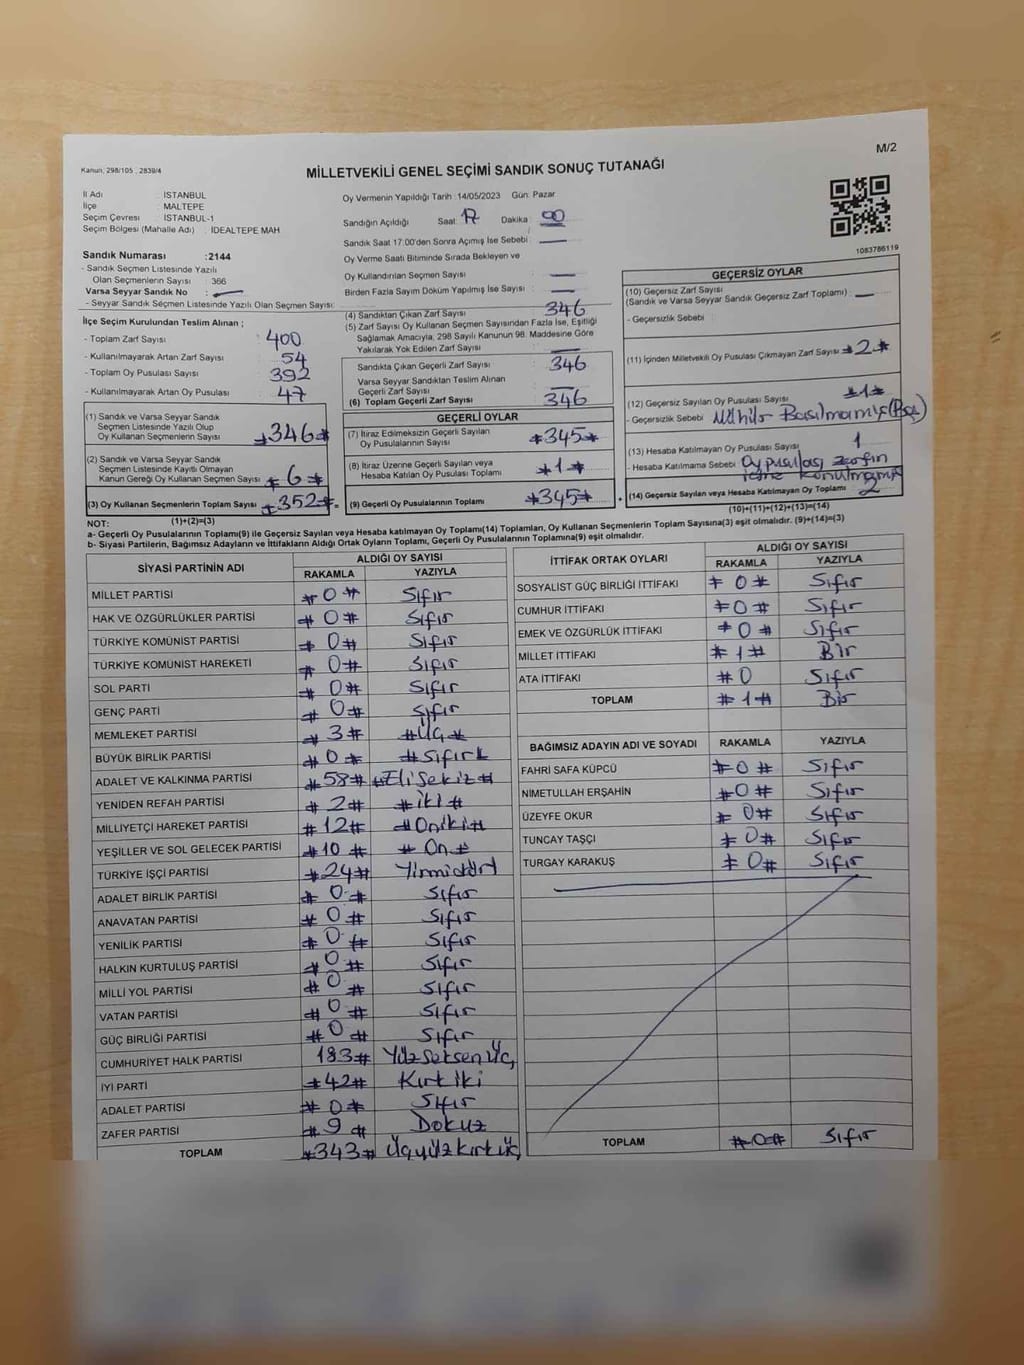 M/2
Kanun, 298/105 , 2839/4
MİLLETVEKİLİ GENEL SEÇİMİ SANDIK SONUÇ TUTANAĞI
İl Adı : İSTANBUL
İlçe : MALTEPE
Seçim Çevresi : İSTANBUL-1
Seçim Bölgesi (Mahalle Adı) : İDEALTEPE MAH
Sandık Numarası :2144
- Sandık Seçmen Listesinde Yazılı
Olan Seçmenlerin Sayısı : 366
Varsa Seyyar Sandık No : —
- Seyyar Sandık Seçmen Listesinde Yazılı Olan Seçmen Sayısı:
İlçe Seçim Kurulundan Teslim Alınan ;
- Toplam Zarf Sayısı : 400
- Kullanılmayarak Artan Zarf Sayısı : 54
- Toplam Oy Pusulası Sayısı : 392
- Kullanılmayarak Artan Oy Pusulası : 47
(1) Sandık ve Varsa Seyyar Sandık
Seçmen Listesinde Yazılı Olup
Oy Kullanan Seçmenlerin Sayısı #346#
(2) Sandık ve Varsa Seyyar Sandık
Seçmen Listesinde Kayıtlı Olmayan
Kanun Gereği Oy Kullanan Seçmen Sayısı # 6 #
(3) Oy Kullanan Seçmenlerin Toplam Sayısı #352#
(1)+(2)=(3)
Oy Vermenin Yapıldığı Tarih :14/05/2023 Gün: Pazar
Sandığın Açıldığı Saat: 17 Dakika : 00
Sandık Saat 17:00'den Sonra Açımış İse Sebebi : —
Oy Verme Saati Bitiminde Sırada Bekleyen ve
Oy Kullandırılan Seçmen Sayısı : —
Birden Fazla Sayım Döküm Yapılmış İse Sayısı : —
(4) Sandıktan Çıkan Zarf Sayısı : 346
(5) Zarf Sayısı Oy Kullanan Seçmen Sayısından Fazla İse, Eşitliği
Sağlamak Amacıyla, 298 Sayılı Kanunun 98. Maddesine Göre
Yakılarak Yok Edilen Zarf Sayısı : —
Sandıkta Çıkan Geçerli Zarf Sayısı : 346
Varsa Seyyar Sandıktan Teslim Alınan
Geçerli Zarf Sayısı : —
(6) Toplam Geçerli Zarf Sayısı : 346
GEÇERLİ OYLAR
(7) İtiraz Edilmeksizin Geçerli Sayılan
Oy Pusulalarının Sayısı : #345#
(8) İtiraz Üzerine Geçerli Sayılan veya
Hesaba Katılan Oy Pusulası Toplamı : #1#
(9) Geçerli Oy Pusulalarının Toplamı : #345#
1083786119
GEÇERSİZ OYLAR
(10) Geçersiz Zarf Sayısı
(Sandık ve Varsa Seyyar Sandık Geçersiz Zarf Toplamı) : —
- Geçersizlik Sebebi :
(11) İçinden Milletvekili Oy Pusulası Çıkmayan Zarf Sayısı : #2#
(12) Geçersiz Sayılan Oy Pusulası Sayısı : #1#
- Geçersizlik Sebebi : Mühür Basılmamış (Boş)
(13) Hesaba Katılmayan Oy Pusulası Sayısı : 1
- Hesaba Katılmama Sebebi : Oy pusulası zarfın
içine konulmamış
(14) Geçersiz Sayılan veya Hesaba Katılmayan Oy Toplamı : 2
(10)+(11)+(12)+(13)=(14)
NOT:
a- Geçerli Oy Pusulalarının Toplamı(9) ile Geçersiz Sayılan veya Hesaba katılmayan Oy Toplamı(14) Toplamları, Oy Kullanan Seçmenlerin Toplam Sayısına(3) eşit olmalıdır. (9)+(14)=(3)
b- Siyasi Partilerin, Bağımsız Adayların ve İttifakların Aldığı Ortak Oyların Toplamı, Geçerli Oy Pusulalarının Toplamına(9) eşit olmalıdır.
SİYASİ PARTİNİN ADI ALDIĞI OY SAYISI
RAKAMLA YAZIYLA
MİLLET PARTİSİ # 0 # Sıfır
HAK VE ÖZGÜRLÜKLER PARTİSİ # 0# Sıfır
TÜRKİYE KOMÜNİST PARTİSİ # 0# Sıfır
TÜRKİYE KOMÜNİST HAREKETİ # 0# Sıfır
SOL PARTİ # 0# Sıfır
GENÇ PARTİ # 0# Sıfır
MEMLEKET PARTİSİ # 3# #Üç#
BÜYÜK BİRLİK PARTİSİ # 0 # #Sıfır#
ADALET VE KALKINMA PARTİSİ #58# #Elisekiz#
YENİDEN REFAH PARTİSİ # 2# #iki#
MİLLİYETÇİ HAREKET PARTİSİ #12# #Oniki#
YEŞİLLER VE SOL GELECEK PARTİSİ #10 # # On #
TÜRKİYE İŞÇİ PARTİSİ #24# Yirmidört
ADALET BİRLİK PARTİSİ # 0 # Sıfır
ANAVATAN PARTİSİ # 0 # Sıfır
YENİLİK PARTİSİ # 0 # Sıfır
HALKIN KURTULUŞ PARTİSİ # 0 # Sıfır
MİLLİ YOL PARTİSİ # 0 # Sıfır
VATAN PARTİSİ # 0 # Sıfır
GÜÇ BİRLİĞİ PARTİSİ # 0 # Sıfır
CUMHURİYET HALK PARTİSİ 183# Yüzseksenüç
İYİ PARTİ #42# Kırkiki
ADALET PARTİSİ # 0 # Sıfır
ZAFER PARTİSİ # 9 # Dokuz
TOPLAM #343# Üçyüzkırküç
İTTİFAK ORTAK OYLARI ALDIĞI OY SAYISI
RAKAMLA YAZIYLA
SOSYALİST GÜÇ BİRLİĞİ İTTİFAKI # 0 # Sıfır
CUMHUR İTTİFAKI #0 # Sıfır
EMEK VE ÖZGÜRLÜK İTTİFAKI # 0 # Sıfır
MİLLET İTTİFAKI # 1 # Bir
ATA İTTİFAKI #0 Sıfır
TOPLAM # 1 # Bir
BAĞIMSIZ ADAYIN ADI VE SOYADI RAKAMLA YAZIYLA
FAHRİ SAFA KÜPCÜ #0 # Sıfır
NİMETULLAH ERŞAHİN #0 # Sıfır
ÜZEYFE OKUR # 0# Sıfır
TUNCAY TAŞÇI # 0# Sıfır
TURGAY KARAKUŞ # 0# Sıfır
TOPLAM #0# Sıfır